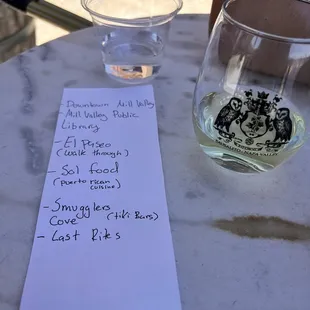 - Downtown Mill Valley
- Mill Valley Public
Library
- El Paseo
(walk through)
- Sol food
(puerto rican
cuisine)
- Smugglers
Cove (tiki Bars)
- Last Rites